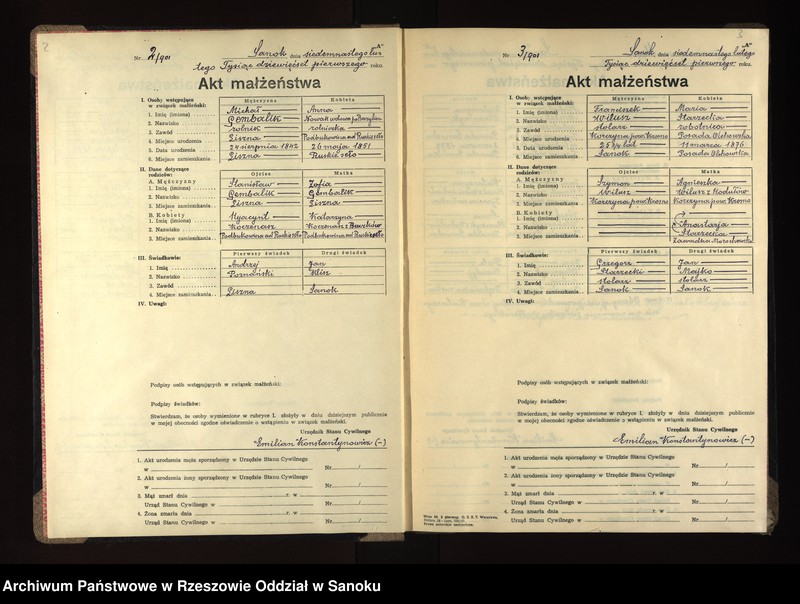 2
Nr. 2/901 Sanok dnia siedemnastego lu-
tego Tysiąc dziewięćset pierwszego roku.
Akt małżeństwa
I. Osoby wstępujące w związek małżeński: Mężczyzna Kobieta
1. Imię (imiona) Michał Anna
2. Nazwisko Gembalik Nowak
3. Zawód rolnik rolniczka
4. Miejsce urodzenia Liszna
5. Data urodzenia 24 sierpnia 1842 26 maja 1851
6. Miejsce zamieszkania Liszna Ruskie sioło
II. Dane dotyczące rodziców: Ojciec Matka
A. Mężczyzny
1. Imię (imiona) Stanisław Zofia
2. Nazwisko Gembalik Gembalik
3. Miejsce zamieszkania Liszna Liszna
B. Kobiety
1. Imię (imiona) Hyacynt Katarzyna
2. Nazwisko Korzenarz Korzenarz z
3. Miejsce zamieszkania
III. Świadkowie: Pierwszy świadek Drugi świadek
1. Imię Andrzej Jan
2. Nazwisko
3. Zawód
4. Miejsce zamieszkania Liszna Sanok
IV. Uwagi:
Podpisy osób wstępujących w związek małżeński:
Podpisy świadków:
Stwierdzam, że osoby wymienione w rubryce I. złożyły w dniu dzisiejszym publicznie
w mojej obecności zgodne oświadczenie o wstąpieniu w związek małżeński.
Urzędnik Stanu Cywilnego
Emilian Konstantynowicz (-)
1. Akt urodzenia męża sporządzony w Urzędzie Stanu Cywilnego
w Nr /
2. Akt urodzenia żony sporządzony w Urzędzie Stanu Cywilnego
w Nr /
3. Mąż zmarł dnia r. w
Urząd Stanu Cywilnego w Nr /
4. Żona zmarła dnia r. w
Urząd Stanu Cywilnego w Nr /
3
Nr 3/901 Sanok dnia siedemnastego lutego
Tysiąc dziewięćset pierwszego roku.
Akt małżeństwa
I. Osoby wstępujące w związek małżeński: Mężczyzna Kobieta
1. Imię (imiona) Franciszek Maria
2. Nazwisko Wilusz Starzecka
3. Zawód stolarz robotnica
4. Miejsce urodzenia Korczyna pow. Krosno Posada Olchowska
5. Data urodzenia lat 11 marca 1876
6. Miejsce zamieszkania Sanok Posada Olchowska
II. Dane dotyczące rodziców: Ojciec Matka
A. Mężczyzny
1. Imię (imiona) Szymon Agnieszka
2. Nazwisko Wilusz Wilusz z
3. Miejsce zamieszkania Korczyna pow. Krosno Korczyna pow. Krosno
B. Kobiety
1. Imię (imiona)
2. Nazwisko Anastazja
3. Miejsce zamieszkania Starzecka
Zawadka Morochowska
III. Świadkowie: Pierwszy świadek Drugi świadek
1. Imię Grzegorz Jan
2. Nazwisko Starzecki Majko
3. Zawód stolarz stolarz
4. Miejsce zamieszkania Sanok Sanok
IV. Uwagi:
Podpisy osób wstępujących w związek małżeński:
Podpisy świadków:
Stwierdzam, że osoby wymienione w rubryce I. złożyły w dniu dzisiejszym publicznie
w mojej obecności zgodne oświadczenie o wstąpieniu w związek małżeński.
Urzędnik Stanu Cywilnego
Emilian Konstantynowicz (-)
1. Akt urodzenia męża sporządzony w Urzędzie Stanu Cywilnego
w Nr /
2. Akt urodzenia żony sporządzony w Urzędzie Stanu Cywilnego
w Nr /
3. Mąż zmarł dnia r. w
Urząd Stanu Cywilnego w Nr /
4. Żona zmarła dnia r. w
Urząd Stanu Cywilnego w Nr /
Archiwum Państwowe w Rzeszowie Oddział w Sanoku